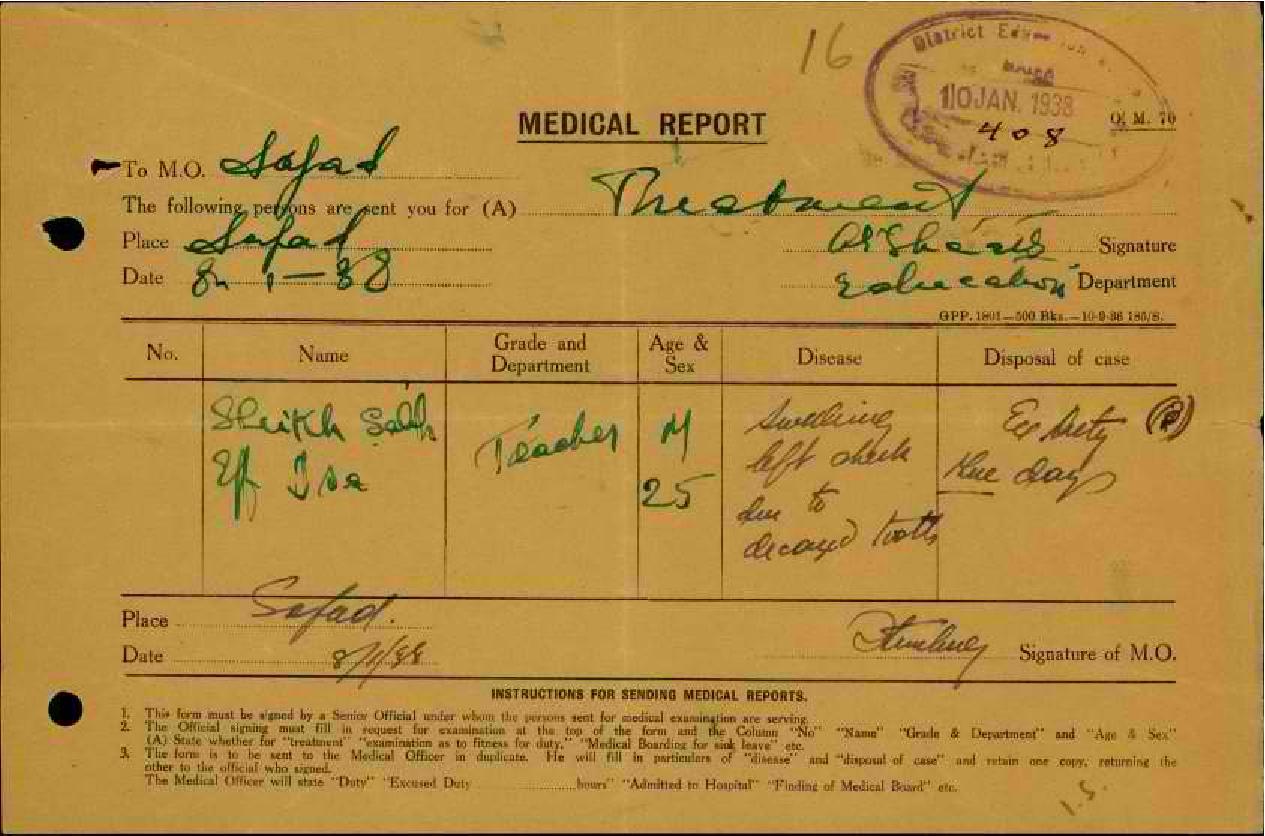 16
District
10 JAN. 1938
408
MEDICAL REPORT
O. M. 70
To M.O. Safad
The following persons are sent you for (A) Treatment
Place Safad
Signature
Date 8-1-38
Education Department
GPP. 1801—500 Bks.—10-9-36 185/S.
No. Name Grade and Department Age & Sex Disease Disposal of case
Sheikh Saleh Teacher M Swelling Ex Duty
Eff Isa 25 left cheek days
due to
decayed tooth
Place Safad.
Date 8/1/38
Signature of M.O.
INSTRUCTIONS FOR SENDING MEDICAL REPORTS.
1. This form must be signed by a Senior Official under whom the persons sent for medical examination are serving.
2. The Official signing must fill in request for examination at the top of the form and the Column "No" "Name" "Grade & Department" and "Age & Sex"
(A) State whether for "treatment" "examination as to fitness for duty," "Medical Boarding for sick leave" etc.
3. The form is to be sent to the Medical Officer in duplicate. He will fill in particulars of "disease" and "disposal of case" and retain one copy, returning the
other to the official who signed.
The Medical Officer will state "Duty" "Excused Duty ............hours" "Admitted to Hospital" "Finding of Medical Board" etc.